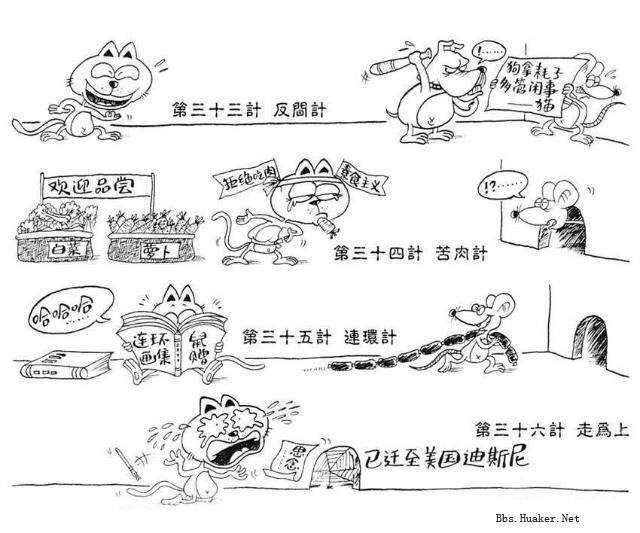 第三十三計 反間計
!……
狗拿耗子
多管闲事
——猫
欢迎品尝
白菜
萝卜
拒绝吃肉
素食主义
第三十四計 苦肉計
!?……
哈哈哈
……
连环
画集
鼠
赠
第三十五計 連環計
第三十六計 走爲上
已迁至美国迪斯尼
Bbs.Huaker.Net